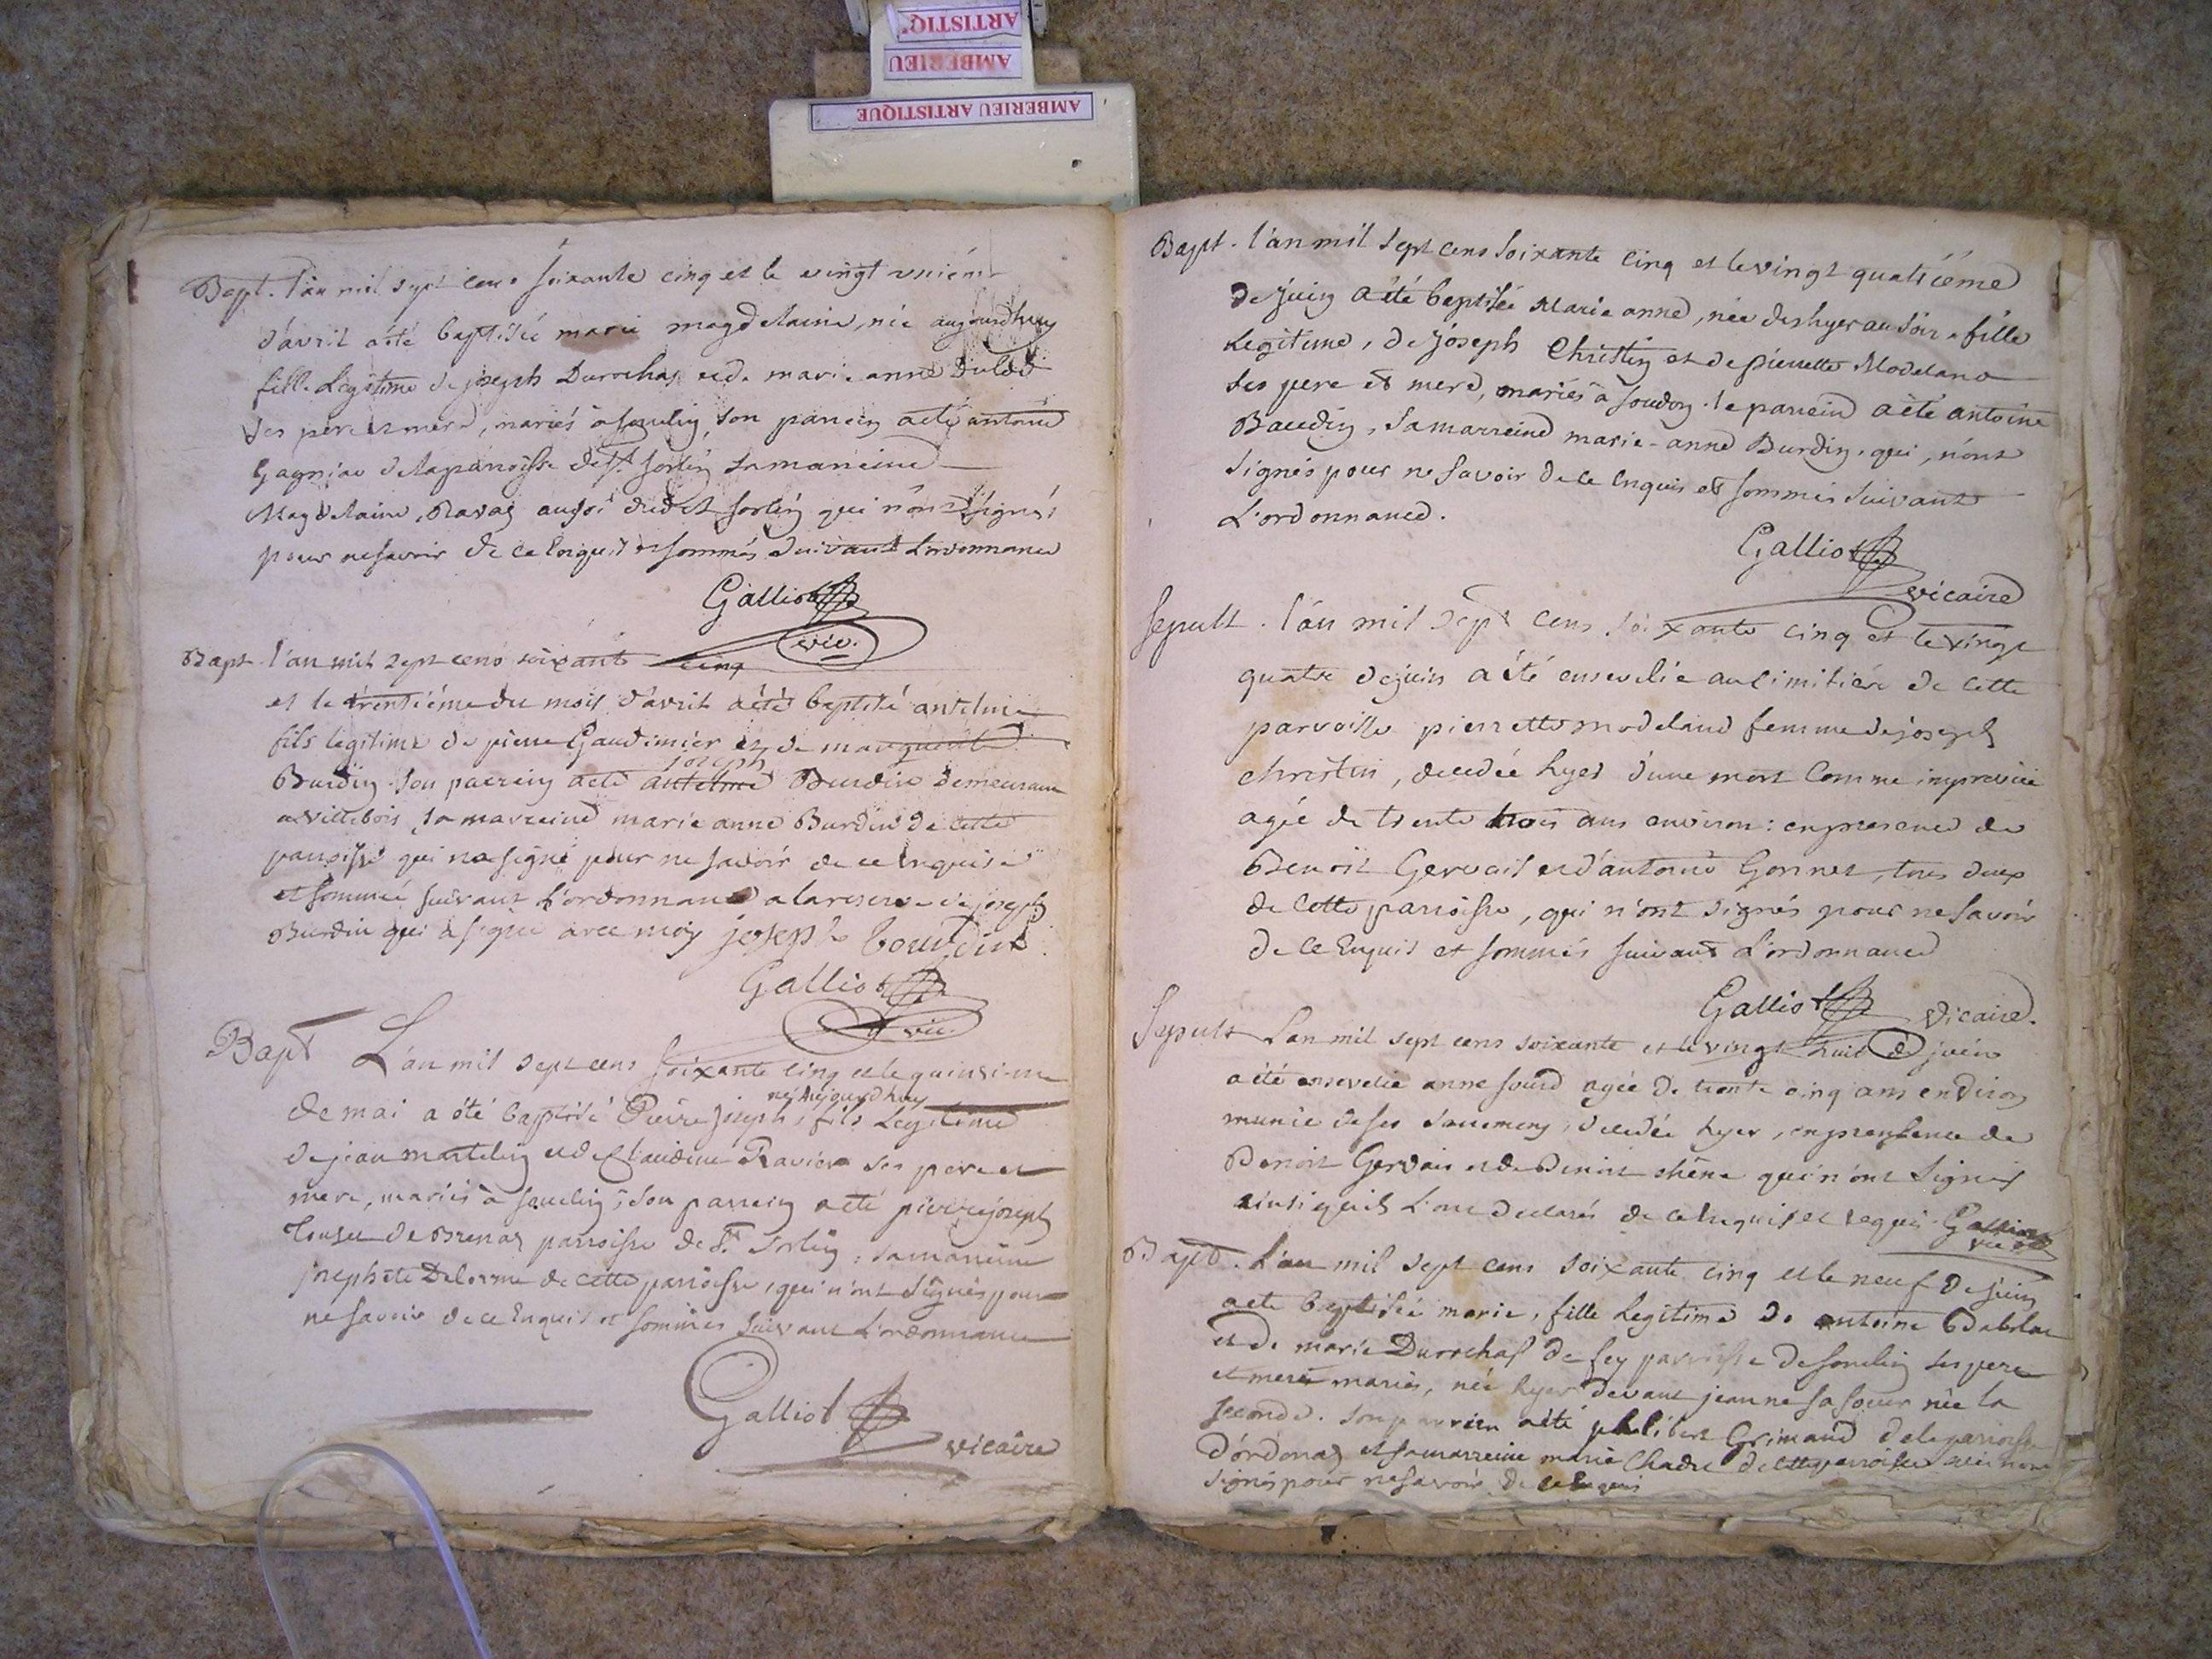 ARTISTIQ
AMBERIEU
AMBERIEU ARTISTIQUE
Bapt. l'an mil sept cens soixante cinq et le vingt uniém
d'avril a été baptisée marie magdelaine, née aujourdhuy
fille Légitime de joseph Durochas et de marie anne
ses pere et mere, mariés a souclin, son parrein a été antoine
Gagniac de la paroisse de st. sorlin sa marreine
Magdelaine Ravas aussi dudit sorlin qui n'ont signés
pour ne savoir de ce Enquis et sommés suivant L'ordonnance
Galliot
vic.
Bapt l'an mil sept cens soixante cinq
et le trentiéme du mois d'avril a été baptisé antelme
fils legitime de pierre Gaudimier et de marguerite
joseph
Burdin son parrein a été antelme Burdin demeurant
a villebois, sa marreine marie anne Burdin de cette
paroisse qui na signé pour ne savoir de ce enquise
et sommée suivant L'ordonnance a la reserve de joseph
Burdin qui a signé avec moy joseph bourdin
Galliot
vic.
Bapt L'an mil sept cens soixante cinq et le quinsieme
né aujourdhuy
de mai a été baptisé Pierre joseph, fils Légitime
de jean martelin et de Claudine Ravier ses pere et
mere, mariés à souclin; son parrein a été pierre joseph
de Brenas parroisse de St. Sorlin, sa marreine
josephte Delorme de cette parroisse, qui n'ont signés pour
ne savoir de ce Enquis et sommés suivant L'ordonnance
Galliot
vicaire
Bapt. l'an mil sept cens soixante cinq et le vingt quatriéme
de juin a été baptisée Marie anne, née des hyer au soir, fille
Legitime, de joseph Christin et de pierrette Modeland
ses pere et mere, mariés à soudon. le parrein a été antoine
Baudin, sa marreine marie-anne Burdin, qui, n'ont
signés pour ne savoir de ce Enquis et sommés suivant
L'ordonnance.
Galliot
vicaire
sepult. l'an mil sept cens soixante cinq et le vingt
quatre de juin a été ensevelie au cimitiére de cette
parroisse pierrette modeland femme de joseph
christin, decedée hyer d'une mort comme improvise
agée de trente trois ans environ: en presence de
Benoit Gervais et d'antoine Gonnet, tous deux
de cette parroisse, qui n'ont signés pour ne savoir
de ce Enquis et sommés suivant L'ordonnance
Galliot vicaire.
sepult L'an mil sept cens soixante et le vingt huit de juin
a été ensevelie anne sourd agée de trente cinq ans environ
munie de ses sacremens, decedée hyer, en presence de
Benoit Gervais et de Benoit chêne qui n'ont signés
ainsi qu'ils L'ont declarés de ce Enquis et requis Galliot
vic
Bapt. L'an mil sept cens soixante cinq et le neuf de juin
a été baptisée marie, fille Legitime de antoine
et de marie Durochas de fey parroisse de souclin ses pere
et mere mariés, née hyer devant jeanne sa soeur née la
seconde. son parrein a été philibert Grimaud de la parroisse
d'ordonas et sa marreine marie Chadre de cette parroisse
signés pour ne savoir de ce Enquis